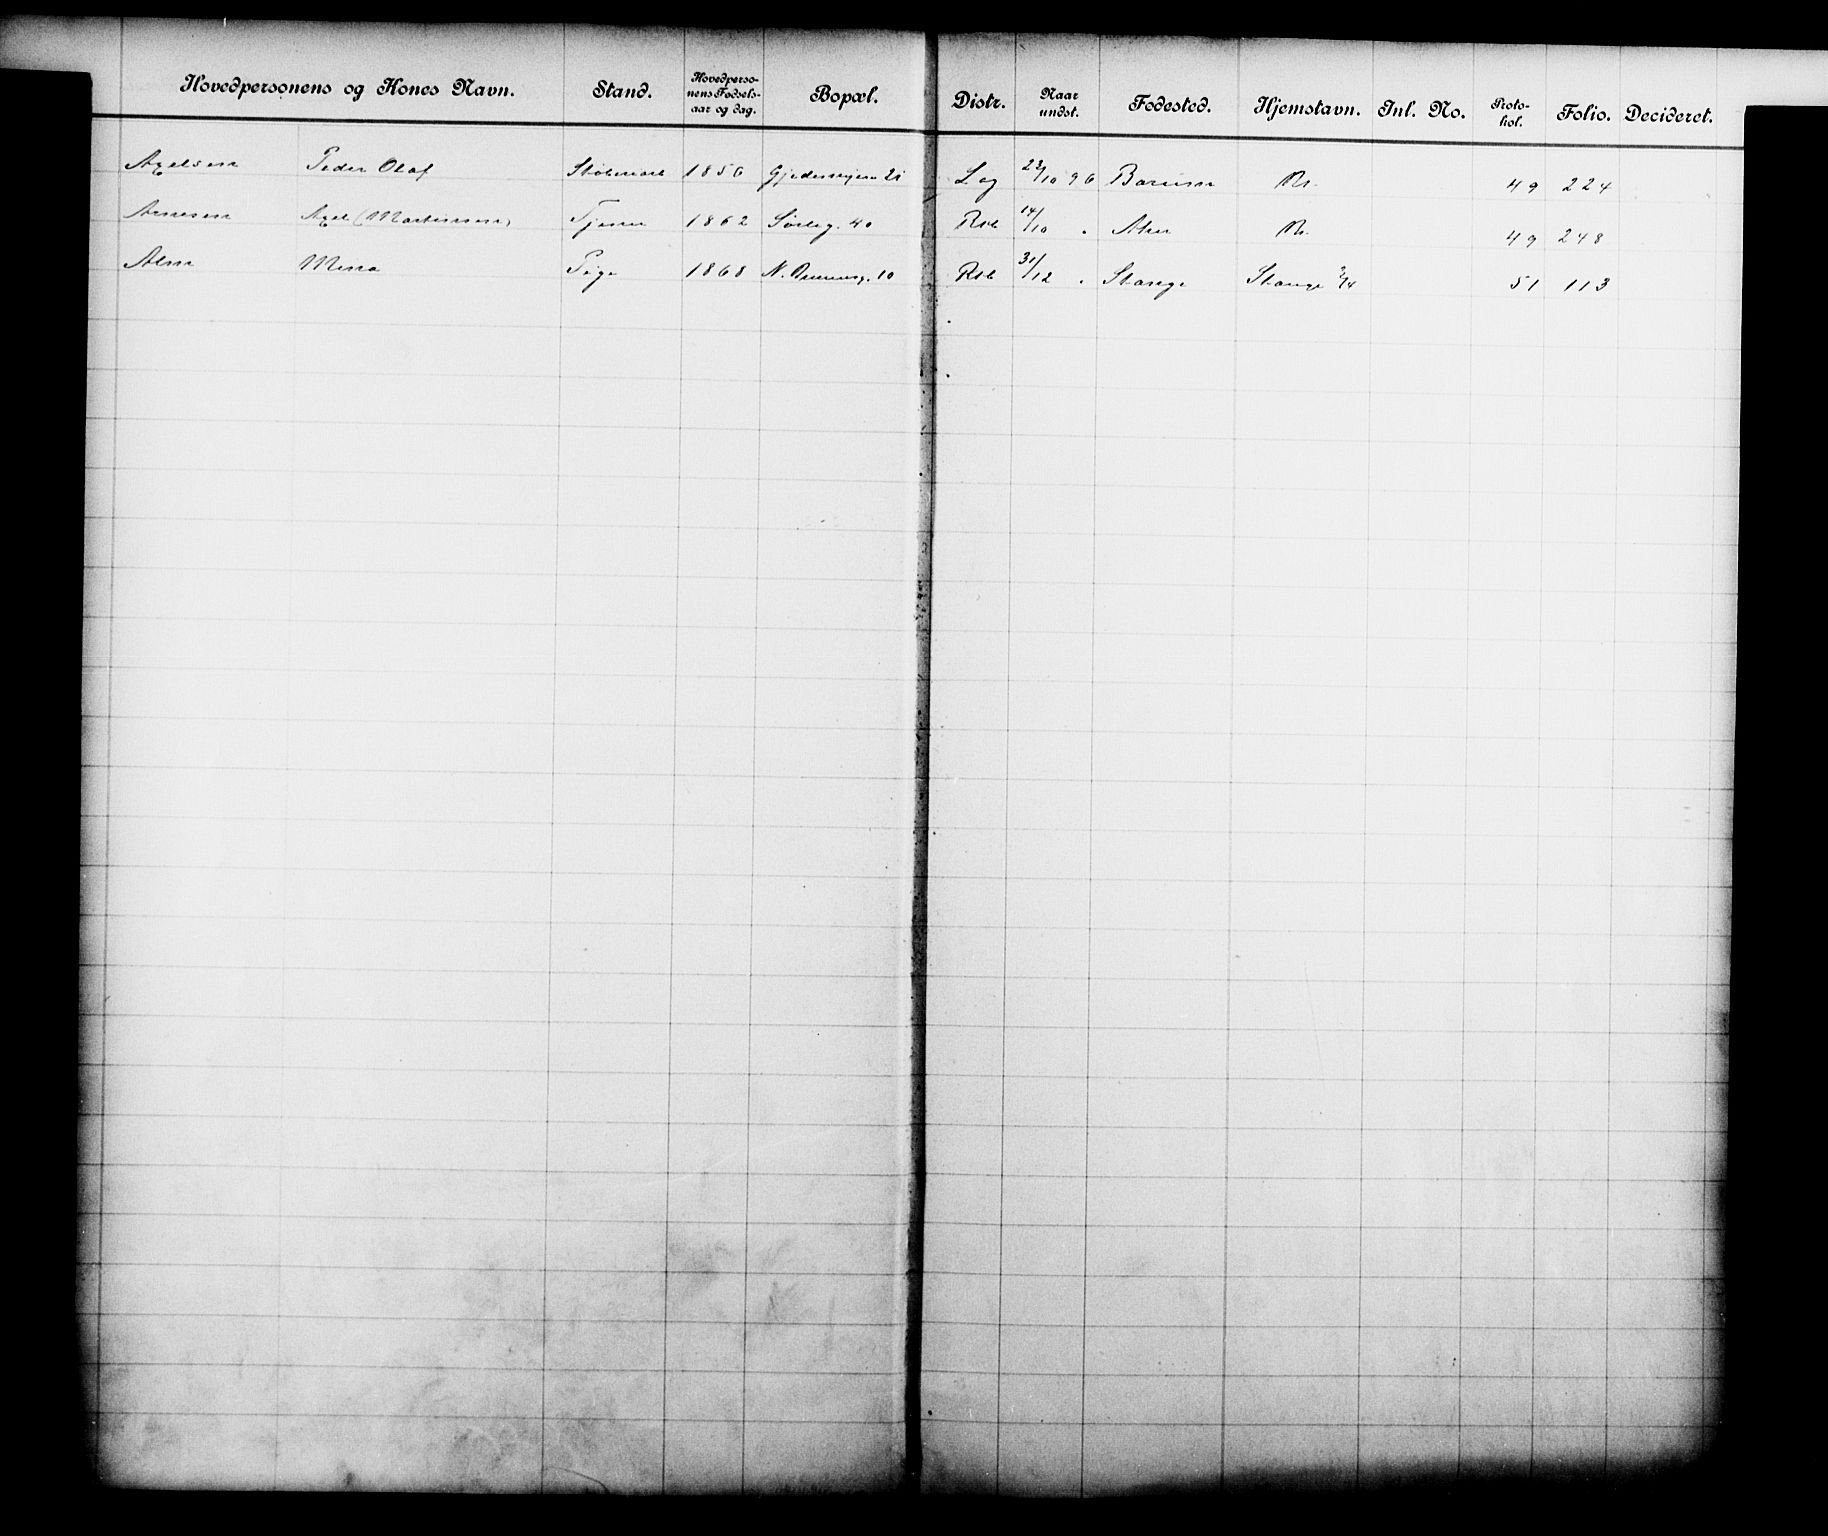 Hovedpersonens og Kones Navn. Stand. Hovedperso-nens Fødsels-aar og dag. Bopæl. Distr. Naar undst. Fødested. Hjemstavn. Inl. No. Proto-kol. Folio. Decideret.
Axelsen Peder Olaf 1856 21 Lag 23/10 96 Bærum Kr. 49 224
Arnesen Axel (Martinsen) Tjener 1862 Sørlig. 40 14/10 " Aker Kr. 49 248
Alm Mina Pige 1868 10 31/12 " Stange Stange 2/4 51 113